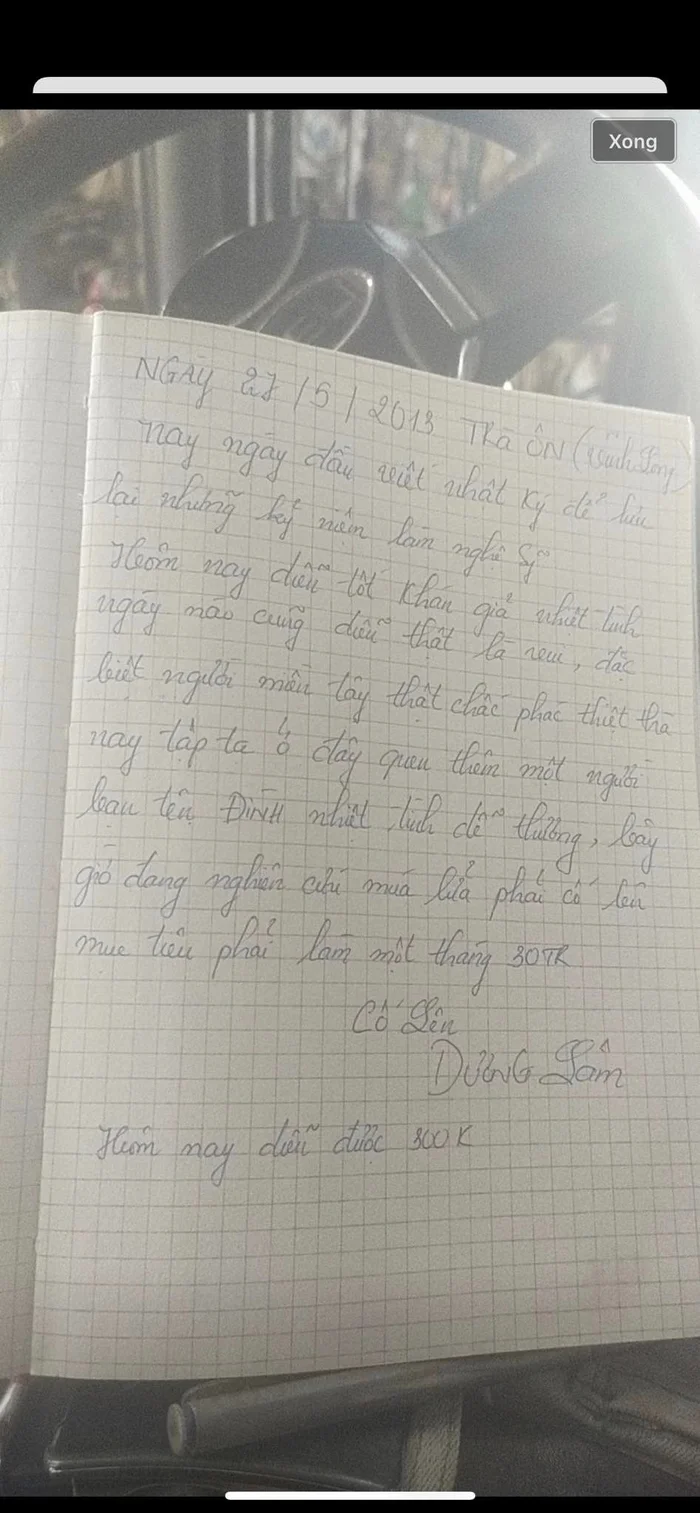 Xong
NGÀY 27/5/2013 TRÀ ÔN (Vĩnh Long)
nay ngày đầu viết nhật ký để lưu
lại những kỷ niệm làm nghệ sỹ
Hôm nay diễn tốt khán giả nhiệt tình
ngày nào cũng diễn thật là vui, đặc
biệt người miền tây thật chất phác thiệt thà
nay tập tạ ở đây quen thêm một người
bạn tên ĐỊNH nhiệt tình dễ thương, bây
giờ đang nghiên cứu múa lửa phải cố lên
mục tiêu phải làm một tháng 30TR
Cố Lên
DƯƠNG Lâm
Hôm nay diễn được 300K